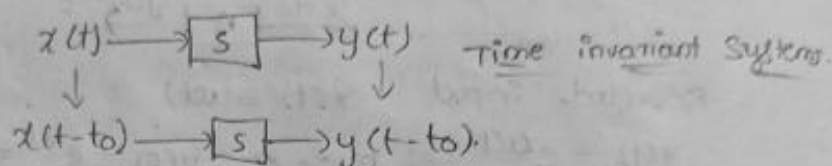 x(t) → S → y(t) Time invariant Systems.
↓ ↓
x(t-to) → S → y(t-to).